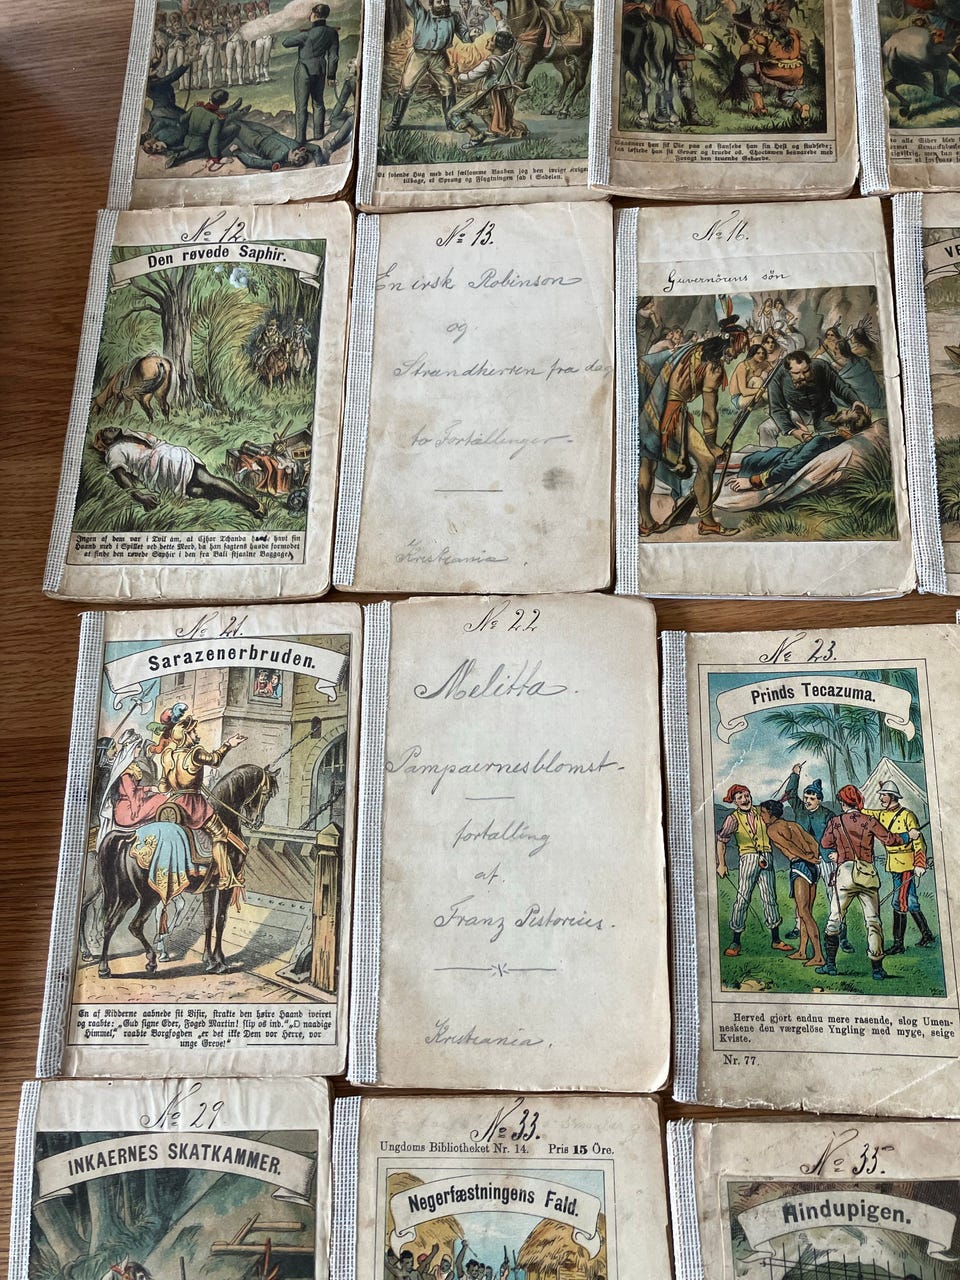 Et susende Hug med det fælsomme Vaaben jog den ivrige
tilbage, et Sprang og Flygtningen sad i Sadelen.
No 12.
Den røvede Saphir.
Ingen af dem var i Tvil am, at
havt sin
Haand med i Spillet ved dette Mord, da han sagtens havde formodet
at finde den røvede Saphir i den fra Bali stjaalne Baggage.
No 13.
En irsk Robinson
og
Strandherren fra dag
to Fortællinger
Kristiania.
No 16.
Guvernörens sön
VE
No 21.
Sarazenerbruden.
En af Ridderne aabnede sit Visir, strakte den høire Haand iveiret
og raabte: „Gud signe Eder, Foged Martin! slip os ind.“ „O naadige
Himmel,“ raabte Borgfogden „er det ikke Dem vor Herre, vor
unge Greve!“
No 22
Melitta.
Pampaernesblomst-
fortælling
af.
Franz Pistorius.
Kristiania.
No 23.
Prinds Tecazuma.
Herved gjort endnu mere rasende, slog Umen-
neskene den værgeløse Yngling med myge, seige
Kviste.
Nr. 77.
No 29
INKAERNES SKATKAMMER.
No 33.
Ungdoms Bibliotheket Nr. 14. Pris 15 Öre.
Negerfæstningens Fald.
No 35.
Hindupigen.